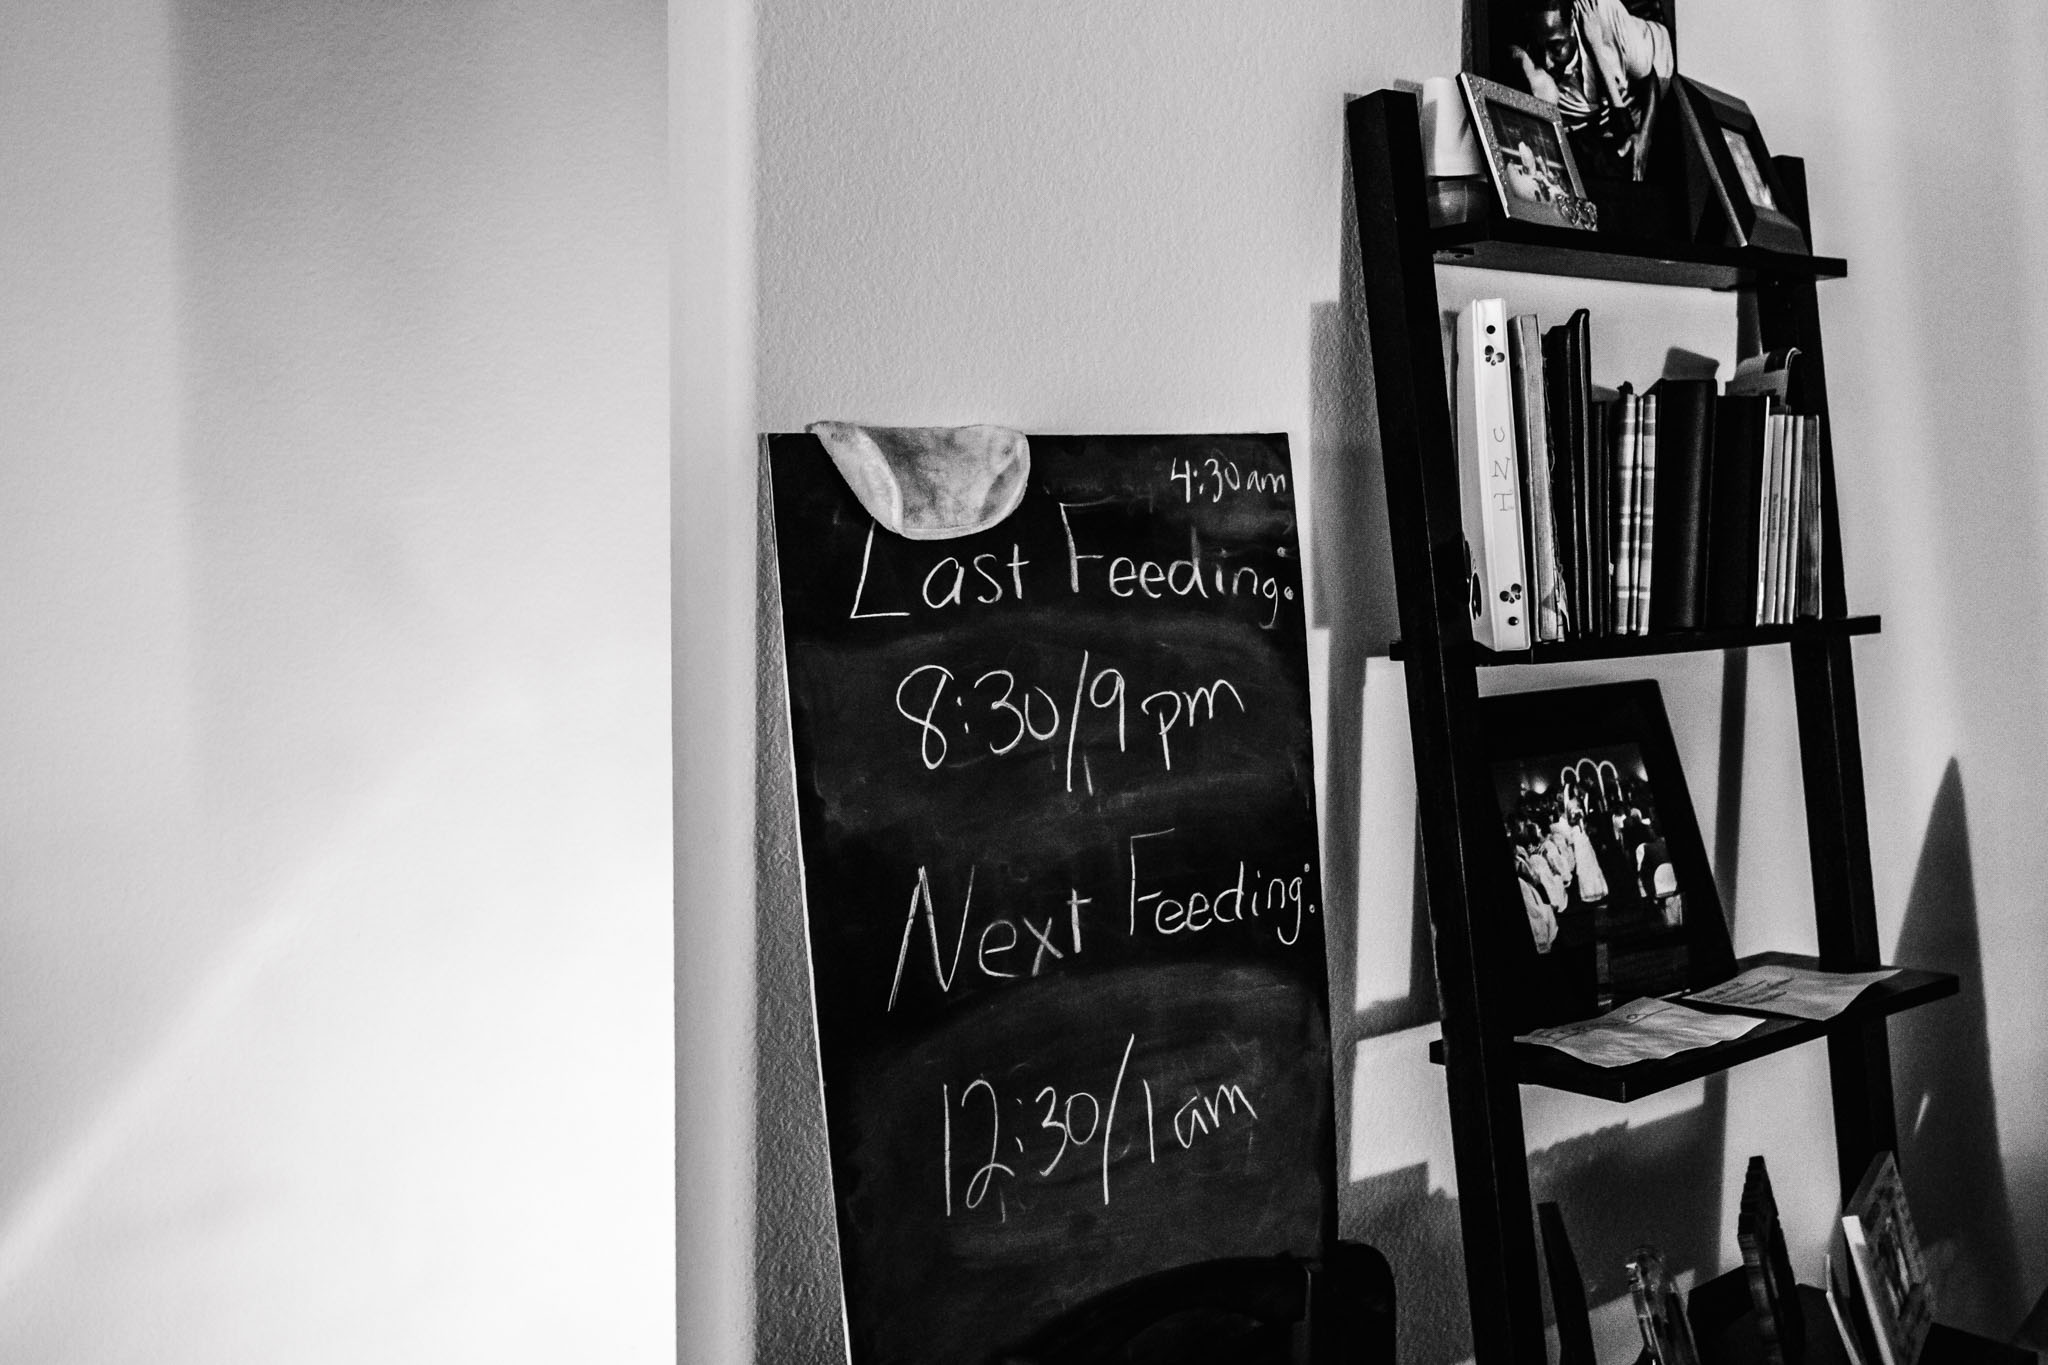 4:30am
Last Feeding:
8:30/9pm
Next Feeding:
12:30/1am
HZC